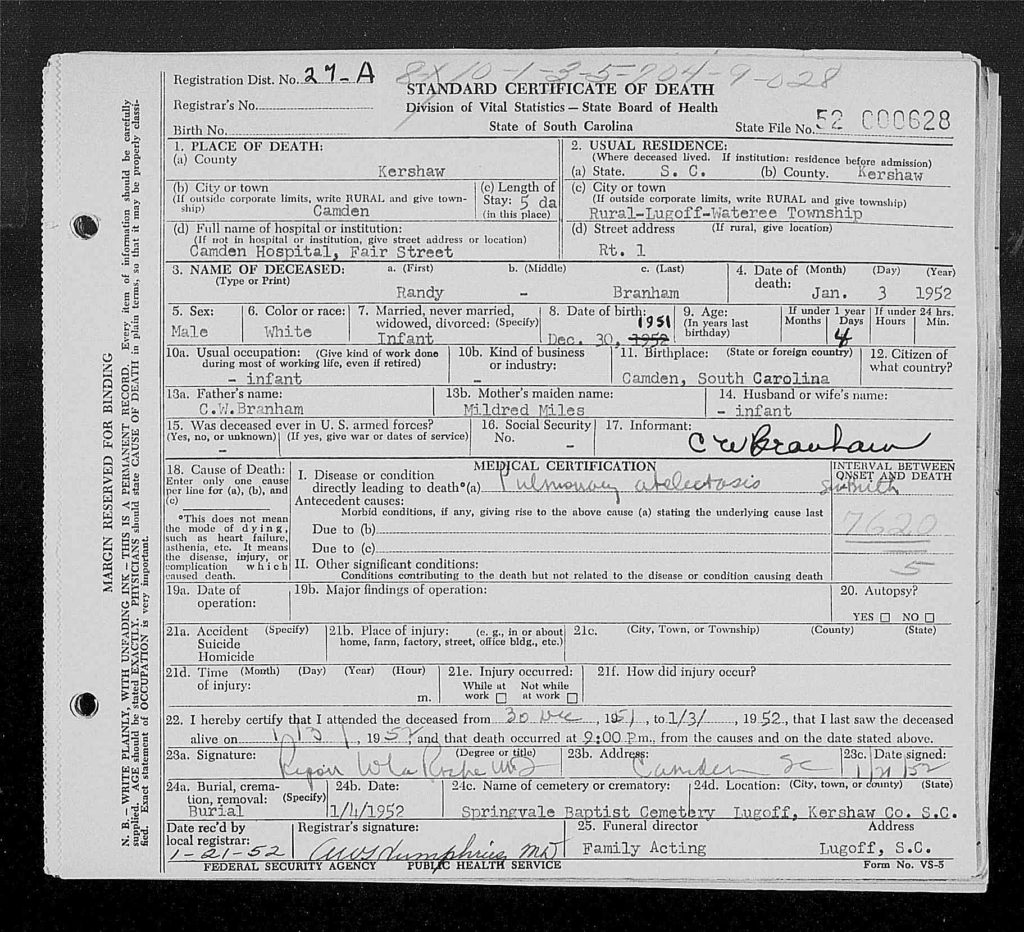 MARGIN RESERVED FOR BINDING
N. B.—WRITE PLAINLY, WITH UNFADING INK—THIS IS A PERMANENT RECORD. Every item of information should be carefully
supplied. AGE should be stated EXACTLY. PHYSICIANS should state CAUSE OF DEATH in plain terms, so that it may be properly classi-
fied. Exact statement of OCCUPATION is very important.
Registration Dist. No. 27-A
STANDARD CERTIFICATE OF DEATH
Registrar's No.
Division of Vital Statistics — State Board of Health
Birth No.
State of South Carolina
State File No. 52 000628
1. PLACE OF DEATH:
(a) County
Kershaw
2. USUAL RESIDENCE:
(Where deceased lived. If institution: residence before admission)
(a) State. S. C. (b) County. Kershaw
(b) City or town
(If outside corporate limits, write RURAL and give town-
ship) Camden
(c) Length of
Stay: 5 da
(in this place)
(c) City or town
(If outside corporate limits, write RURAL and give township)
Rural-Lugoff-Wateree Township
(d) Full name of hospital or institution:
(If not in hospital or institution, give street address or location)
Camden Hospital, Fair Street
(d) Street address (If rural, give location)
Rt. 1
3. NAME OF DECEASED: a. (First) b. (Middle) c. (Last)
(Type or Print)
Randy - Branham
4. Date of (Month) (Day) (Year)
death:
Jan. 3 1952
5. Sex:
Male
6. Color or race:
White
7. Married, never married,
widowed, divorced: (Specify)
Infant
8. Date of birth:
1951
Dec. 30, 1952
9. Age:
(In years last
birthday)
If under 1 year
Months Days
4
If under 24 hrs.
Hours Min.
10a. Usual occupation: (Give kind of work done
during most of working life, even if retired)
- infant
10b. Kind of business
or industry:
-
11. Birthplace: (State or foreign country)
Camden, South Carolina
12. Citizen of
what country?
13a. Father's name:
C.W.Branham
13b. Mother's maiden name:
Mildred Miles
14. Husband or wife's name:
- infant
15. Was deceased ever in U. S. armed forces?
(Yes, no, or unknown) (If yes, give war or dates of service)
-
16. Social Security
No. -
17. Informant:
C W Branham
18. Cause of Death:
Enter only one cause
per line for (a), (b), and
(c)
*This does not mean
the mode of dying,
such as heart failure,
asthenia, etc. It means
the disease, injury, or
complication which
caused death.
MEDICAL CERTIFICATION
I. Disease or condition
directly leading to death*(a) Pulmonary atelectasis
Antecedent causes:
Morbid conditions, if any, giving rise to the above cause (a) stating the underlying cause last
Due to (b)
Due to (c)
II. Other significant conditions:
Conditions contributing to the death but not related to the disease or condition causing death
INTERVAL BETWEEN
ONSET AND DEATH
7620
5
19a. Date of
operation:
19b. Major findings of operation:
20. Autopsy?
YES NO
21a. Accident (Specify)
Suicide
Homicide
21b. Place of injury: (e. g., in or about
home, farm, factory, street, office bldg., etc.)
21c. (City, Town, or Township) (County) (State)
21d. Time (Month) (Day) (Year) (Hour)
of injury: m.
21e. Injury occurred:
While at Not while
work at work
21f. How did injury occur?
22. I hereby certify that I attended the deceased from 30 Dec, 1951, to 1/3/, 1952, that I last saw the deceased
alive on 1/3/, 1952 and that death occurred at 9:00 P.m., from the causes and on the date stated above.
23a. Signature: (Degree or title)
23b. Address:
Camden SC
23c. Date signed:
1/21/52
24a. Burial, crema-
tion, removal: (Specify)
Burial
24b. Date:
1/4/1952
24c. Name of cemetery or crematory:
Springvale Baptist Cemetery
24d. Location: (City, town, or county) (State)
Lugoff, Kershaw Co. S.C.
Date rec'd by
local registrar:
1-21-52
Registrar's signature:
Humphries MD
25. Funeral director Address
Family Acting Lugoff, S.C.
FEDERAL SECURITY AGENCY PUBLIC HEALTH SERVICE
Form No. VS-5